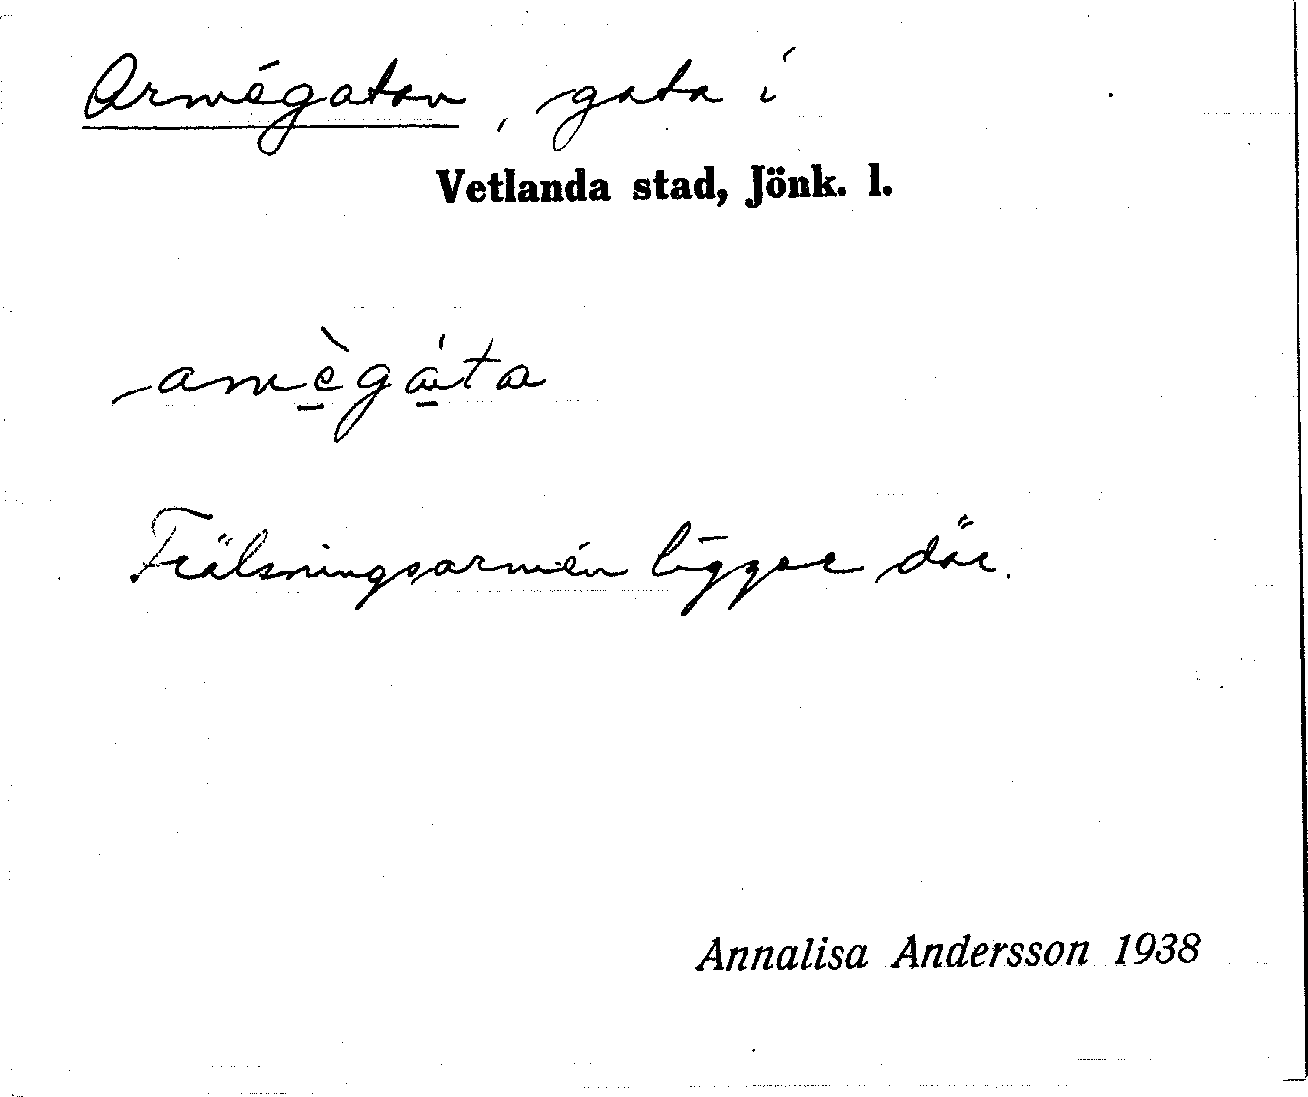 Armégatan, gata i
Vetlanda stad, Jönk. l.
amègáta
Frälsningsarmén ligger där.
Annalisa Andersson 1938